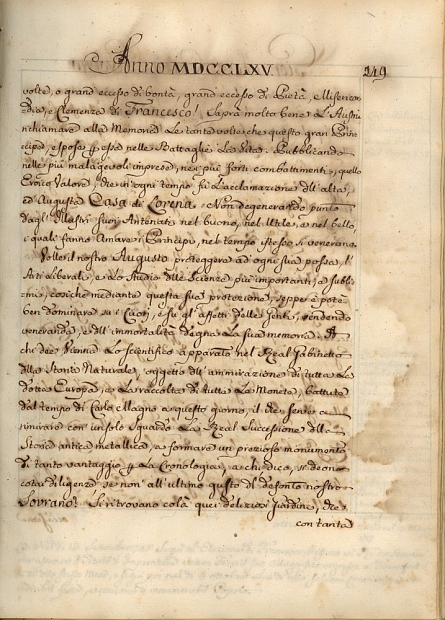 Anno MDCCLXV.
249
volte, o grand eccesso di bontà, grand eccesso di Pietà, Misericor
dia, e Clemenza di Francesco! Saprà molto bene
richiamare alla Memoria Le tante volte che questo gran Prin
cipe, espose nelle Battaglie La Vita: Pubblicando
nelle più malagevoli imprese, ne i più forti combattimenti, quello
Eroico Valore, che in ogni tempo fù L'acclamazione dell'alta,
ed Augusta Casa di Lorena. Non degenerando punto
dagl'Illustri suoi Antenati nel buono, nel Utile, e nel bello,
i quali fanno Amare i Principi, nel tempo istesso si venerano.
Volle il nostro Augusto proteggere ad ogni sua possa, l'
Arti Liberali, e Lo Studio delle Scienze più importanti, e subli
mi, cosichè mediante questa sua protezione, seppe e potè
ben dominare su i Cuori, e su gl'affetti delle Genti, rendendo
veneranda, e dell'immortalità degna La sua memoria. A
che dire Vienna Lo scientifico apparato nel Real Gabinetto
della Storia Naturale, oggetto dell'ammirazione di tutta La
dotta Europa, e La raccolta di tutta La Moneta, battuta
dal tempo di Carlo Magno a questo giorno, il che serve a
rimirare con un solo Sguardo La Real Successione della
Storia antica metallica, e formare un prezioso monumento
di tanto vantaggio La Cronologia, a chi dico, si deono
cotai diligenze se non all'ultimo gusto del defonto nostro
Sovrano? Si ritrovano colà quei deliziosi Giardini, che
con tanta